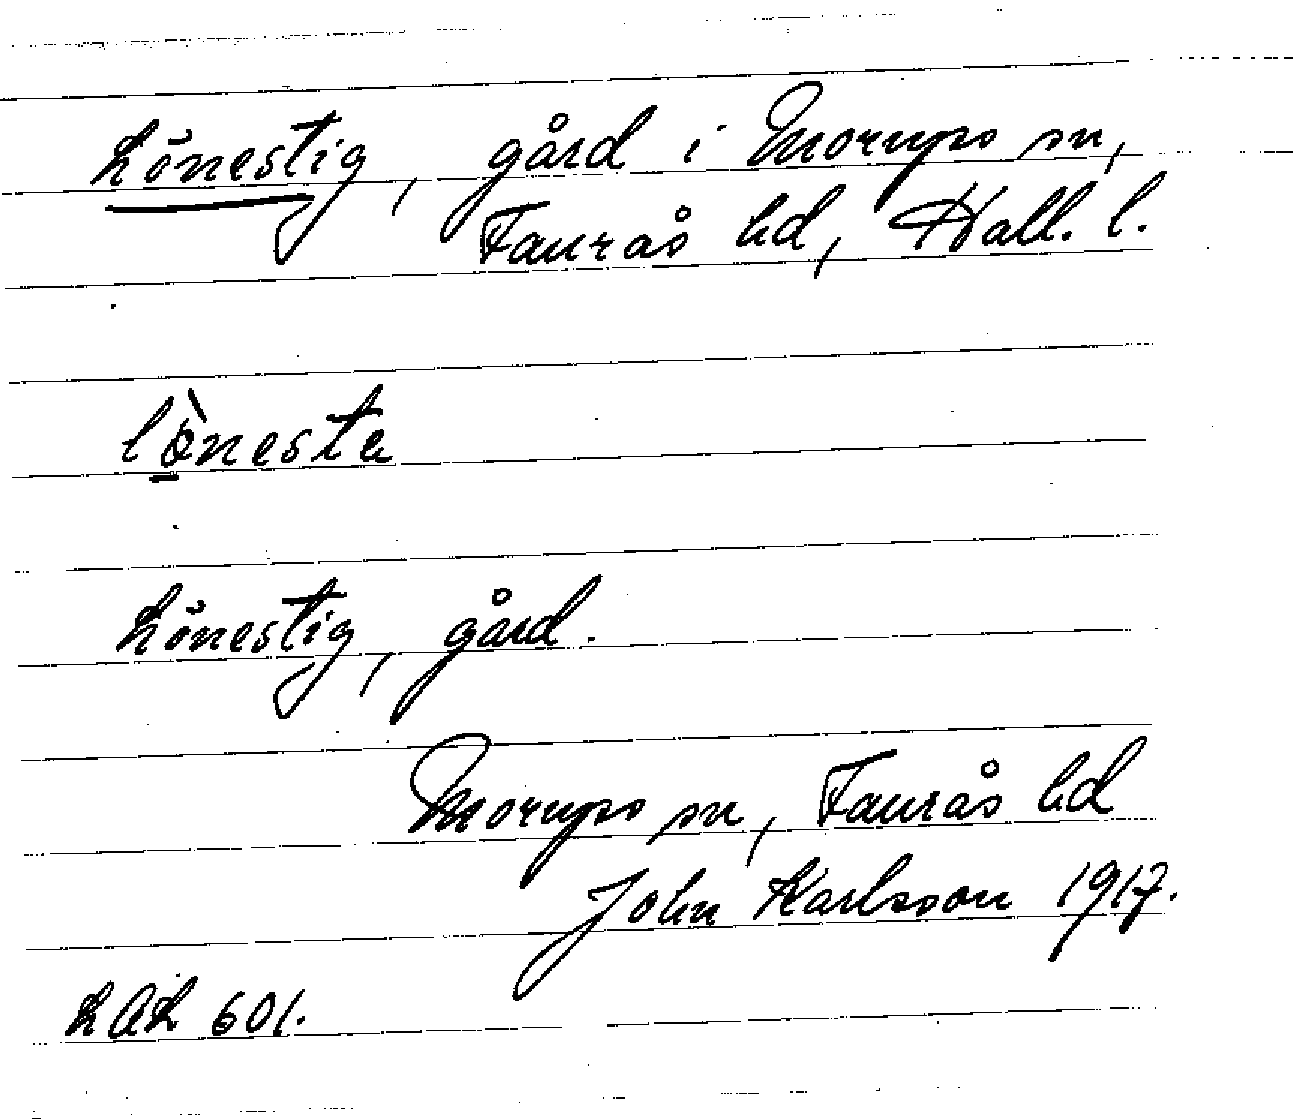 Lönestig, gård i Morups sn,
Faurås hd, Hall. l.
lònesta
Lönestig, gård.
Morups sn, Faurås hd
John Karlsson 1917.
LAL 601.